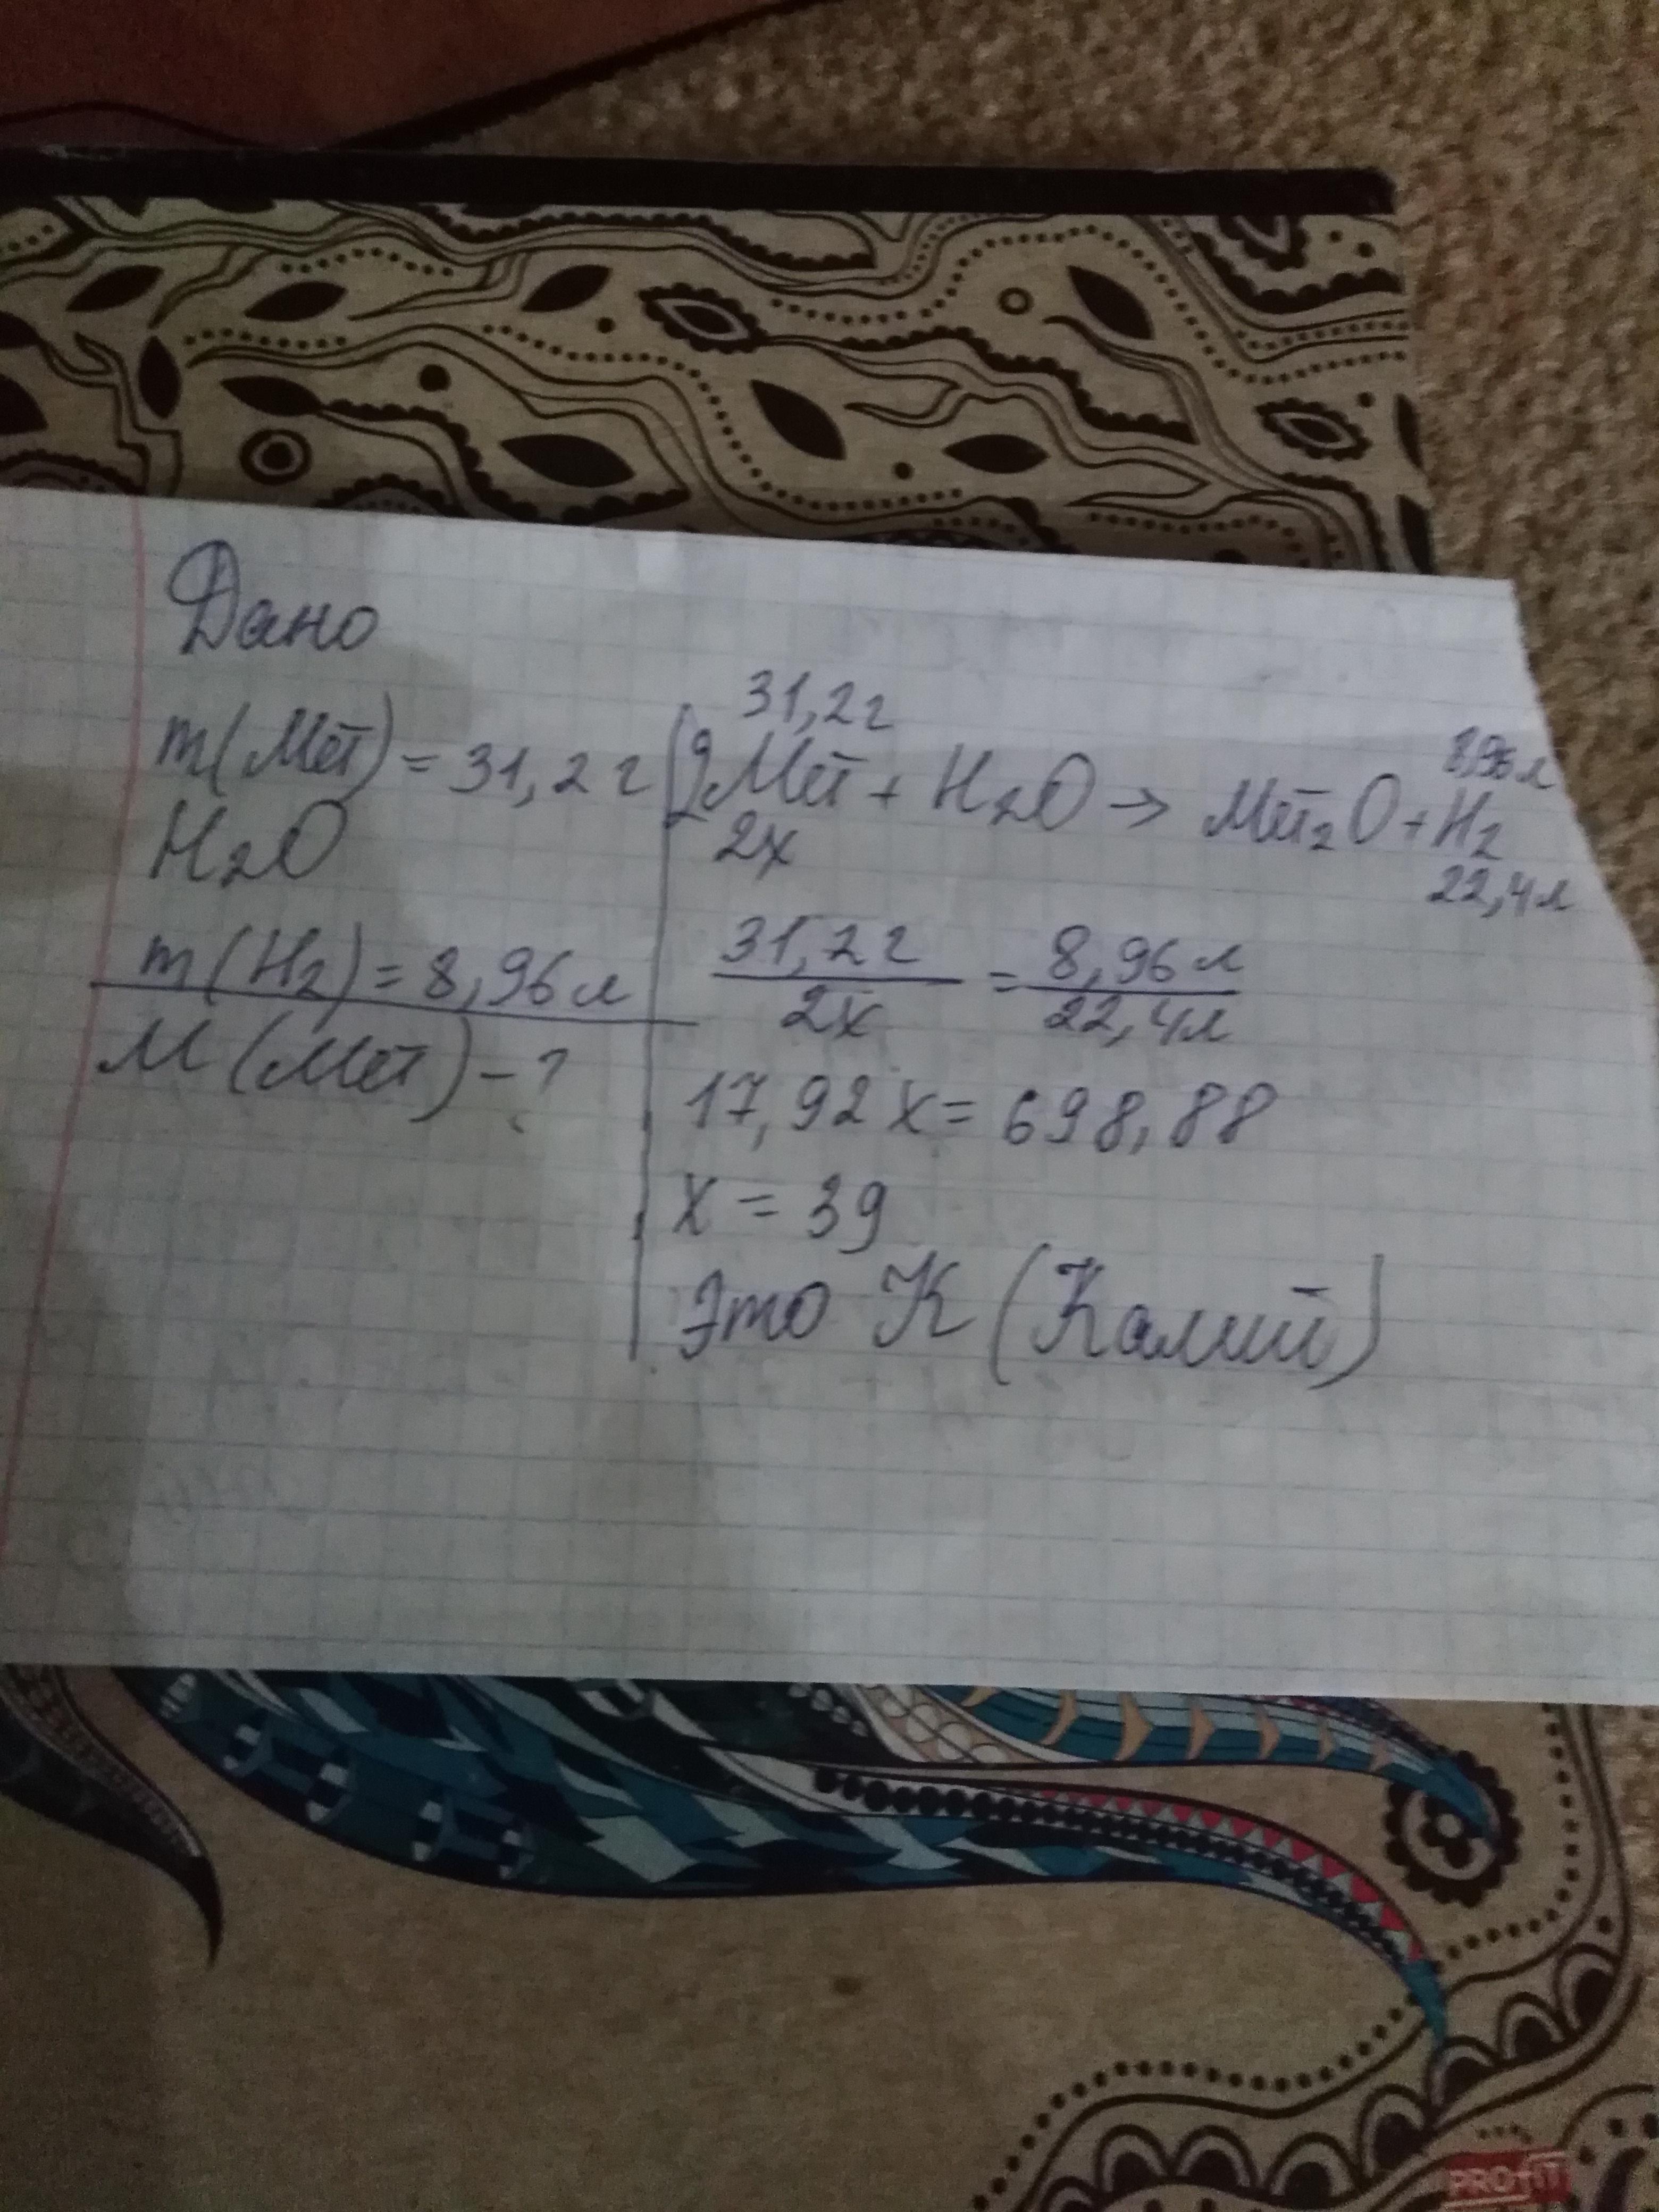 Дано
m(Мет) = 31,2 г
H₂O
m(H₂) = 8,96 л
M(Мет) - ?
31,2 г
8,96 л
2Мет + H₂O → Мет₂O + H₂
2x
22,4 л
31,2 г / 2x = 8,96 л / 22,4 л
17,92 x = 698,88
x = 39
Это K (Калий)
PROFIT